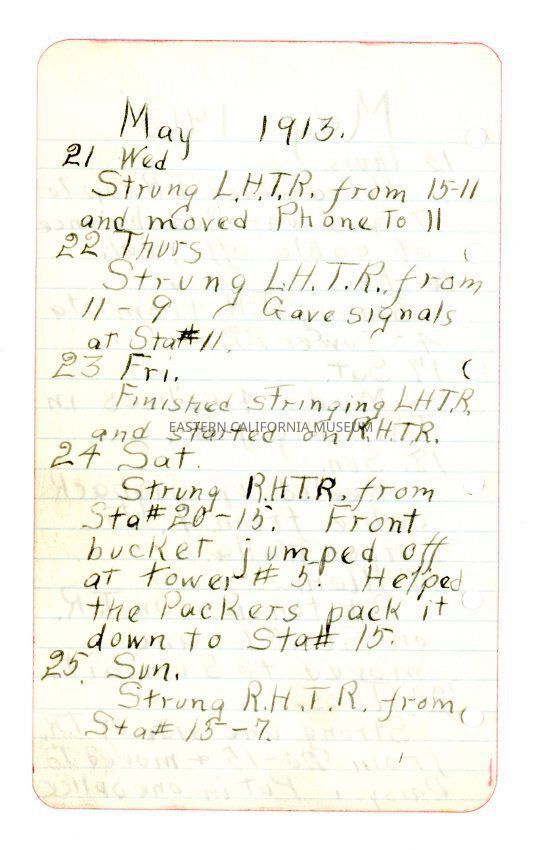 May 1913.
21 Wed
Strung L.H.T.R. from 15-11
and moved Phone To 11
22 Thurs
Strung L.H.T.R. from
11-9 Gave signals
at Sta#11.
23 Fri.
Finished stringing L.H.T.R.
and started on R.H.T.R.
EASTERN CALIFORNIA MUSEUM
24 Sat.
Strung R.H.T.R. from
Sta# 20-15. Front
bucket jumped off
at tower # 5. Helped
the Packers pack it
down to Sta# 15.
25 Sun.
Strung R.H.T.R. from
Sta# 15-7.